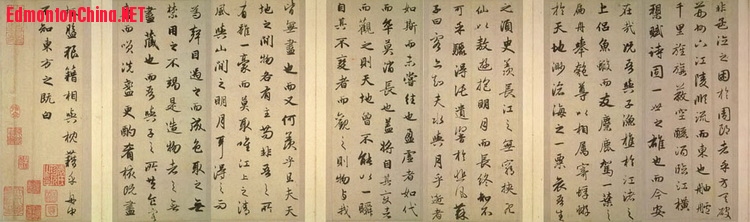 EdmontonChina.NET
非孟德之困於周郎者乎方其破
荊州下江陵順流而東也舳艫
千里旌旗蔽空釃酒臨江橫
槊賦詩固一世之雄也而今安
在哉況吾與子漁樵於江渚之
上侶魚蝦而友麋鹿駕一葉之
扁舟舉匏尊以相屬寄蜉蝣
於天地渺滄海之一粟哀吾生
之須臾羨長江之無窮挾飛
仙以遨遊抱明月而長終知不
可乎驟得託遺響於悲風蘇
子曰客亦知夫水與月乎逝者
如斯而未嘗往也盈虛者如代
而卒莫消長也蓋將自其變者
而觀之則天地曾不能以一瞬
自其不變者而觀之則物與我
皆無盡也而又何羨乎且夫天
地之間物各有主苟非吾之所
有雖一毫而莫取唯江上之清
風與山間之明月耳得之而
為聲目遇之而成色取之無
禁用之不竭是造物者之無
盡藏也而吾與子之所共食客喜
而笑洗盞更酌肴核既盡
杯盤狼籍相與枕藉乎舟中
不知東方之既白